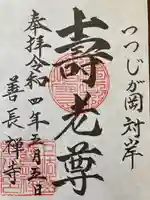 つつじが岡対岸
壽老尊
奉拝令和四年三月五日
善長禅寺